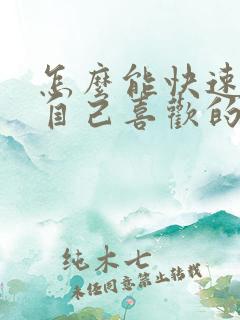 怎麼能快速
自己喜歡的
纯木七
未经同意禁止转载